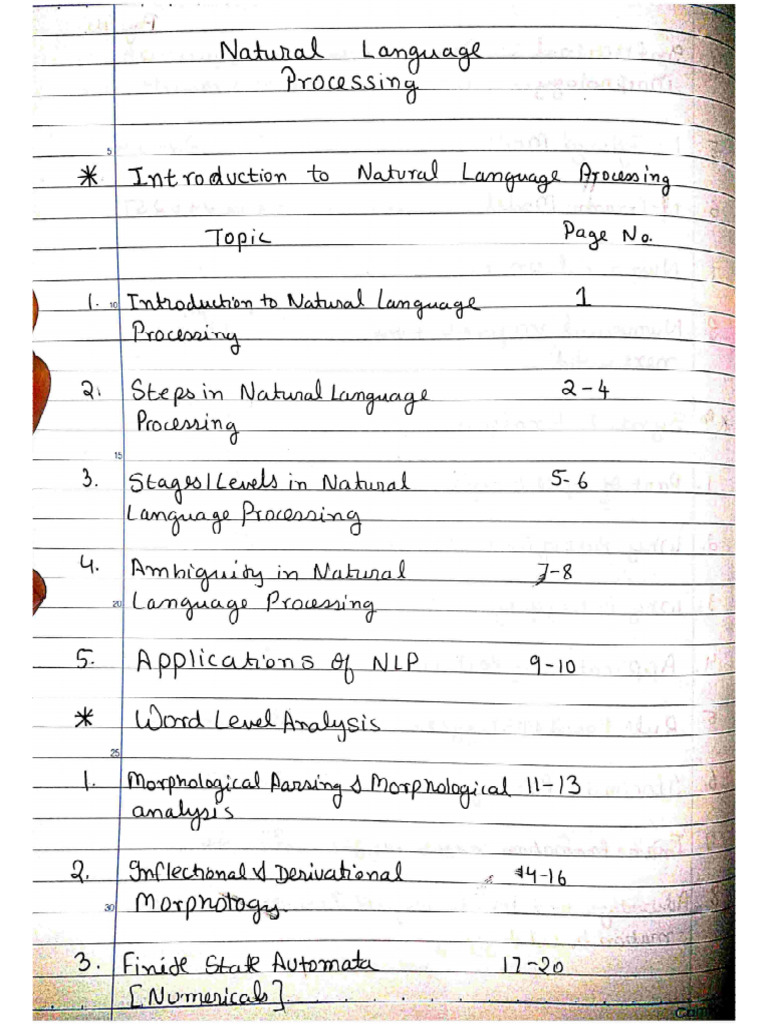 Natural Language
Processing
5
* Introduction to Natural Language Processing
Topic Page No.
1. 10 Introduction to Natural Language 1
Processing
2. Steps in Natural Language 2-4
Processing
15
3. Stages/Levels in Natural 5-6
Language Processing
4. Ambiguity in Natural 7-8
20 Language Processing
5. Applications of NLP 9-10
* Word Level Analysis
25
1. Morphological Parsing & Morphological 11-13
analysis
2. Inflectional & Derivational 14-16
30 Morphology
3. Finite State Automata 17-20
[Numericals]